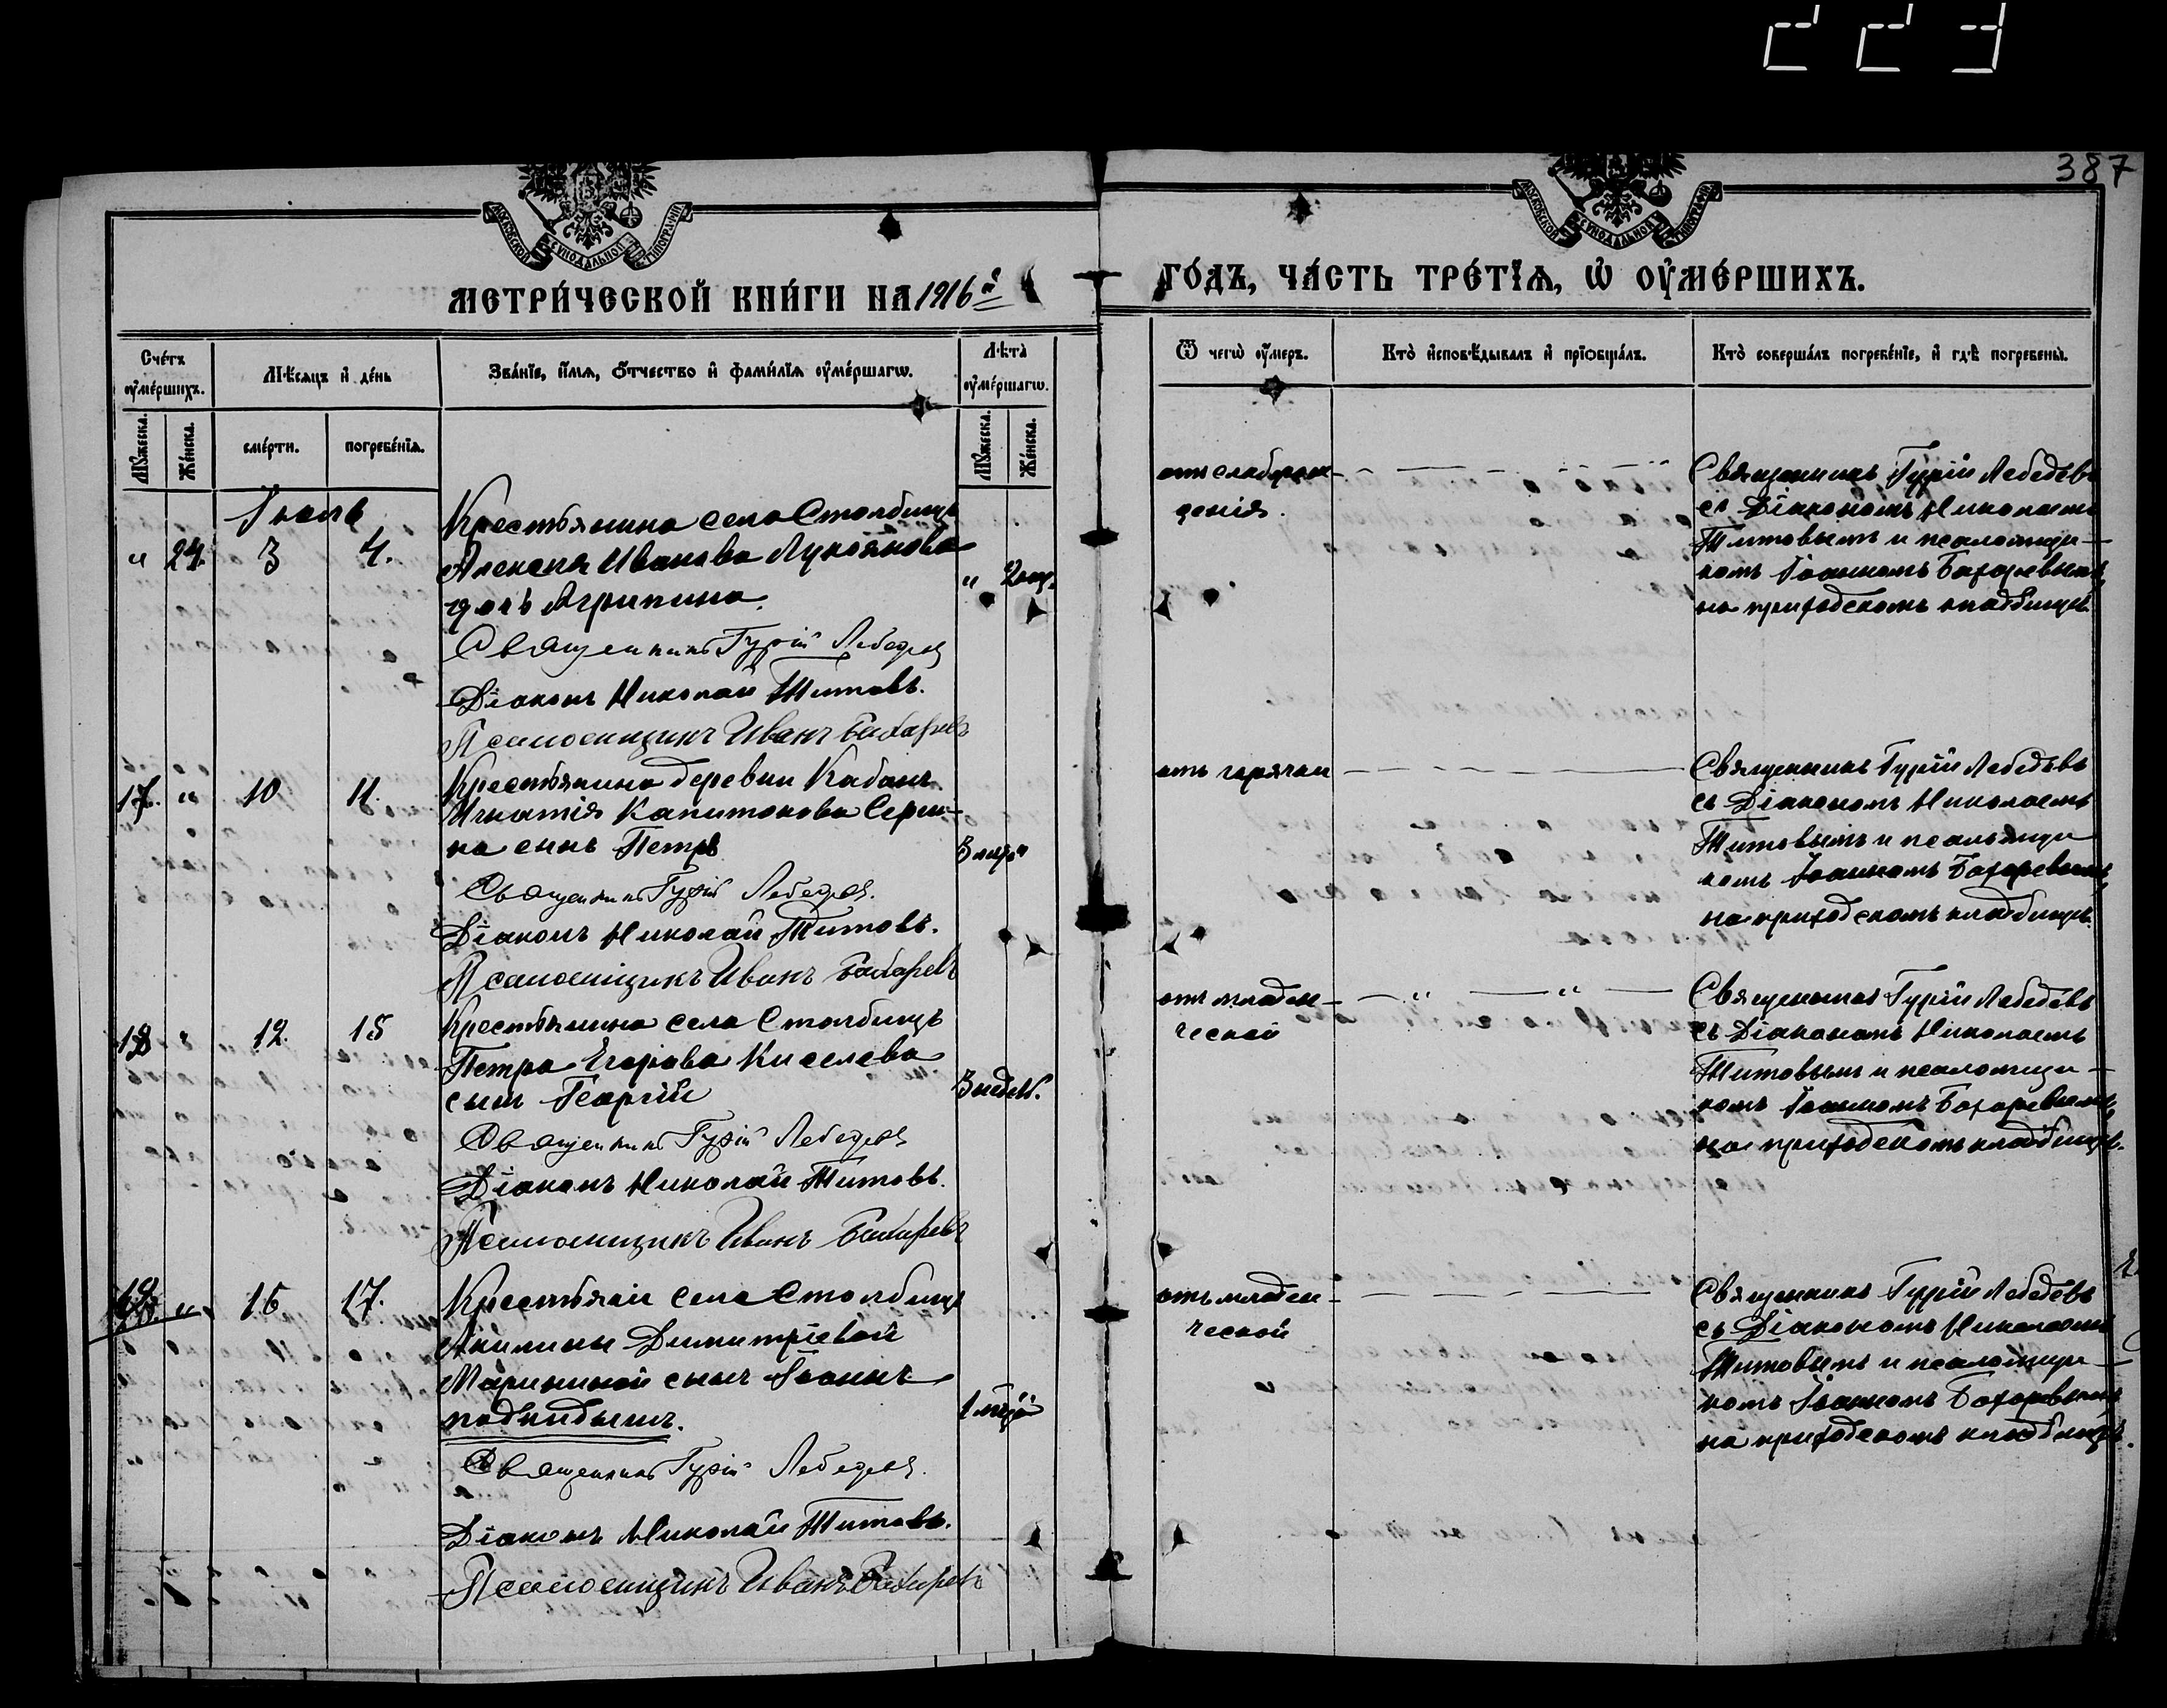 223
387
МОСКОВСКОЙ СѴНОДАЛЬНОЙ ТИПОГРАФІИ
МОСКОВСКОЙ СѴНОДАЛЬНОЙ ТИПОГРАФІИ
МЕТРИ́ЧЕСКОЙ КНИ́ГИ НА 1916й
ГО́ДЪ, ЧА́СТЬ ТРЕ́ТЇѦ, Ѡ҆ ОУ҆МЕ́РШИХЪ.
Сче́тъ оу҆ме́ршихъ.
Мѣ́сяцъ и҆ де́нь
Зва́нїе, и҆́мѧ, ѻ҆́тчество и҆ фами́лїѧ оу҆ме́ршагѡ.
Лѣ́та оу҆ме́ршагѡ.
Ѿ чегѡ̀ оу҆́меръ.
Кто̀ и҆сповѣ́дывалъ и҆ прїѡбща́лъ.
Кто̀ соверша́лъ погребе́нїе, и҆ гдѣ̀ погребены̀.
Му́жеска.
Же́нска.
сме́рти.
погребе́нїѧ.
Му́жеска.
Же́нска.
Іюль
Крестьянина села Столбищъ
" 24. 3 4. Алексѣя Иванова Лукоянова " 2 нед.
дочь Агрипина.
Священникъ Гурій Лебедев
Діаконъ Николай Титовъ.
Псаломщикъ Иванъ Бахаревъ
отъ слаборож-
денія.
Священникъ Гурій Лебедевъ
съ Діакономъ Николаемъ
Титовымъ и псаломщи-
комъ Іоанномъ Бахаревымъ,
на приходскомъ кладбищѣ.
Крестьянина деревни Кабанъ
17. " 10 11. Игнатія Капитонова Серги-
на сынъ Петръ
Священникъ Гурій Лебедев.
Діаконъ Николай Титовъ.
Псаломщикъ Иванъ Бахаревъ
отъ горячки
Священникъ Гурій Лебедевъ
съ Діакономъ Николаемъ
Титовымъ и псаломщи
комъ Іоанномъ Бахаревымъ,
на приходскомъ кладбищѣ.
18 " 12. 15 Крестьянина села Столбищъ
Петра Егорова Киселева
сынъ Георгій 3 недѣл.
Священникъ Гурій Лебедев
Діаконъ Николай Титовъ.
Псаломщикъ Иванъ Бахаревъ
отъ младен-
ческой
Священникъ Гурій Лебедевъ
съ Діакономъ Николаемъ
Титовымъ и псаломщи-
комъ Іоанномъ Бахаревымъ,
на приходскомъ кладбищѣ.
19. " 16 17. Крестьян села Столбищъ
Акилины Димитріевой
Марининой сынъ Іоаннъ
подкидышъ.
Священникъ Гурій Лебедев.
Діаконъ Николай Титовъ.
Псаломщикъ Иванъ Бахаревъ
отъ младен-
ческой
Священникъ Гурій Лебедевъ
съ Діакономъ Николаемъ
Титовымъ и псаломщи-
комъ Іоанномъ Бахаревымъ
на приходскомъ кладбищѣ.